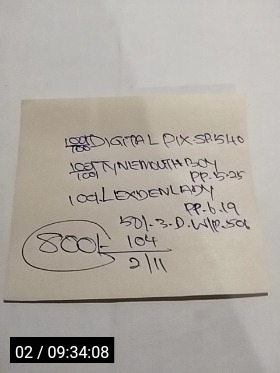 DIGITAL PIX. SP. 5/40
100/ TYNEMOUTH BOY
PP. 5.25
100/ LEXDEN LADY
PP. 6.19
50/-3.D.W/P.506
800/- 104
2/11
02 / 09:34:08